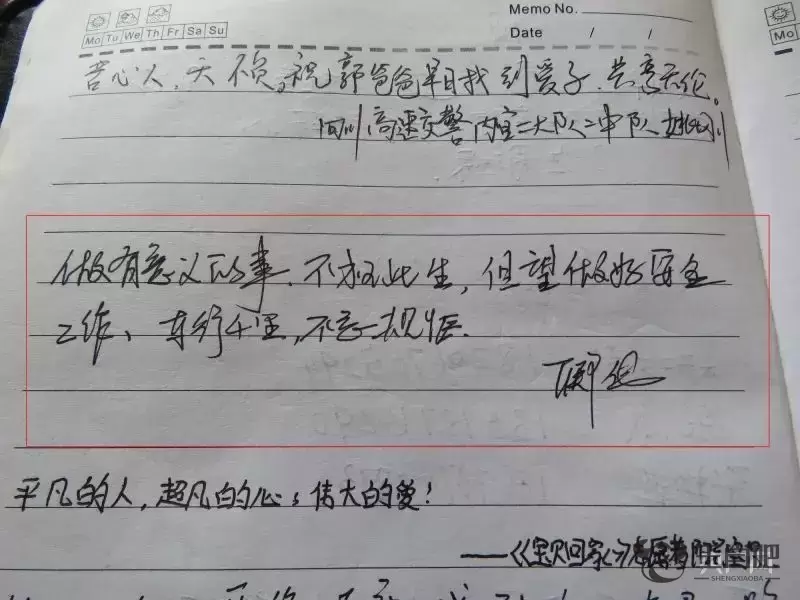 Memo No.
Mo Tu We Th Fr Sa Su
Date / /
Mo
苦心人,天不负。祝郭爸爸早日找到爱子.共享天伦。
四川高速交警内宜二大队二中队
做有意义的事.不枉此生,但望做好安全
工作、车行千里,不意
平凡的人,超凡的心,伟大的爱!
——《宝贝回家》志愿者
SHENGXIAOBA